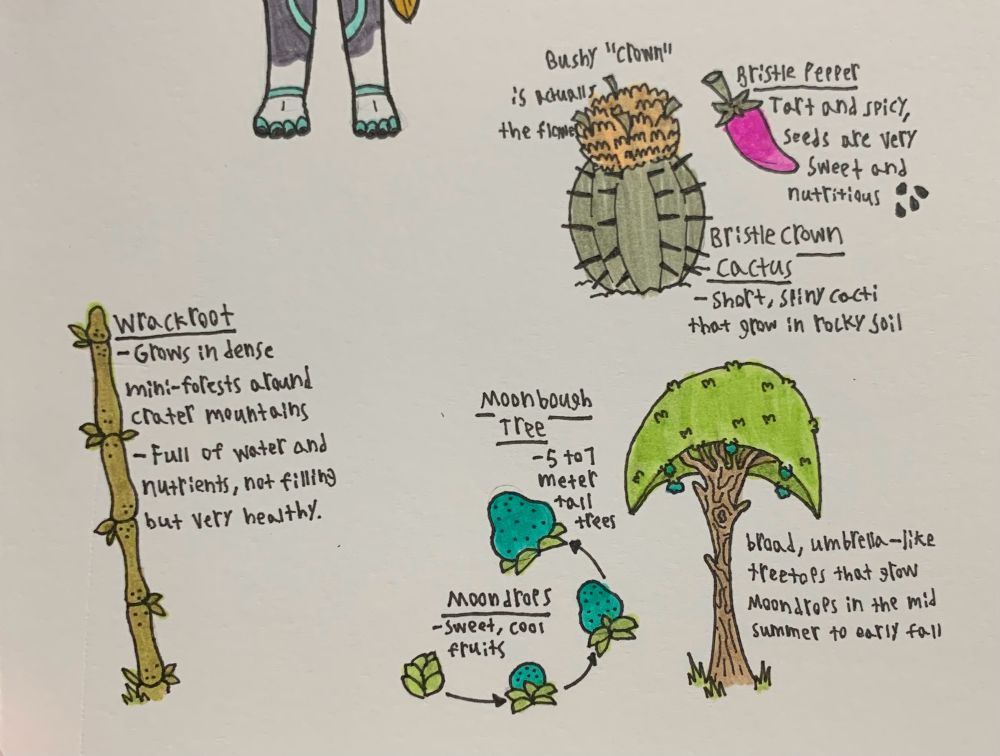 Bushy "crown"
is actually
the flower
Bristle Pepper
Tart and spicy,
seeds are very
sweet and
nutritious
Bristle Crown
Cactus
- Short, spiny cacti
that grow in rocky soil
Wrackroot
- Grows in dense
mini-forests around
crater mountains
- Full of water and
nutrients, not filling
but very healthy.
Moonbough
Tree
- 5 to 7
meter
tall
trees
broad, umbrella-like
treetops that grow
Moondrops in the mid
summer to early fall
Moondrops
- Sweet, cool
fruits